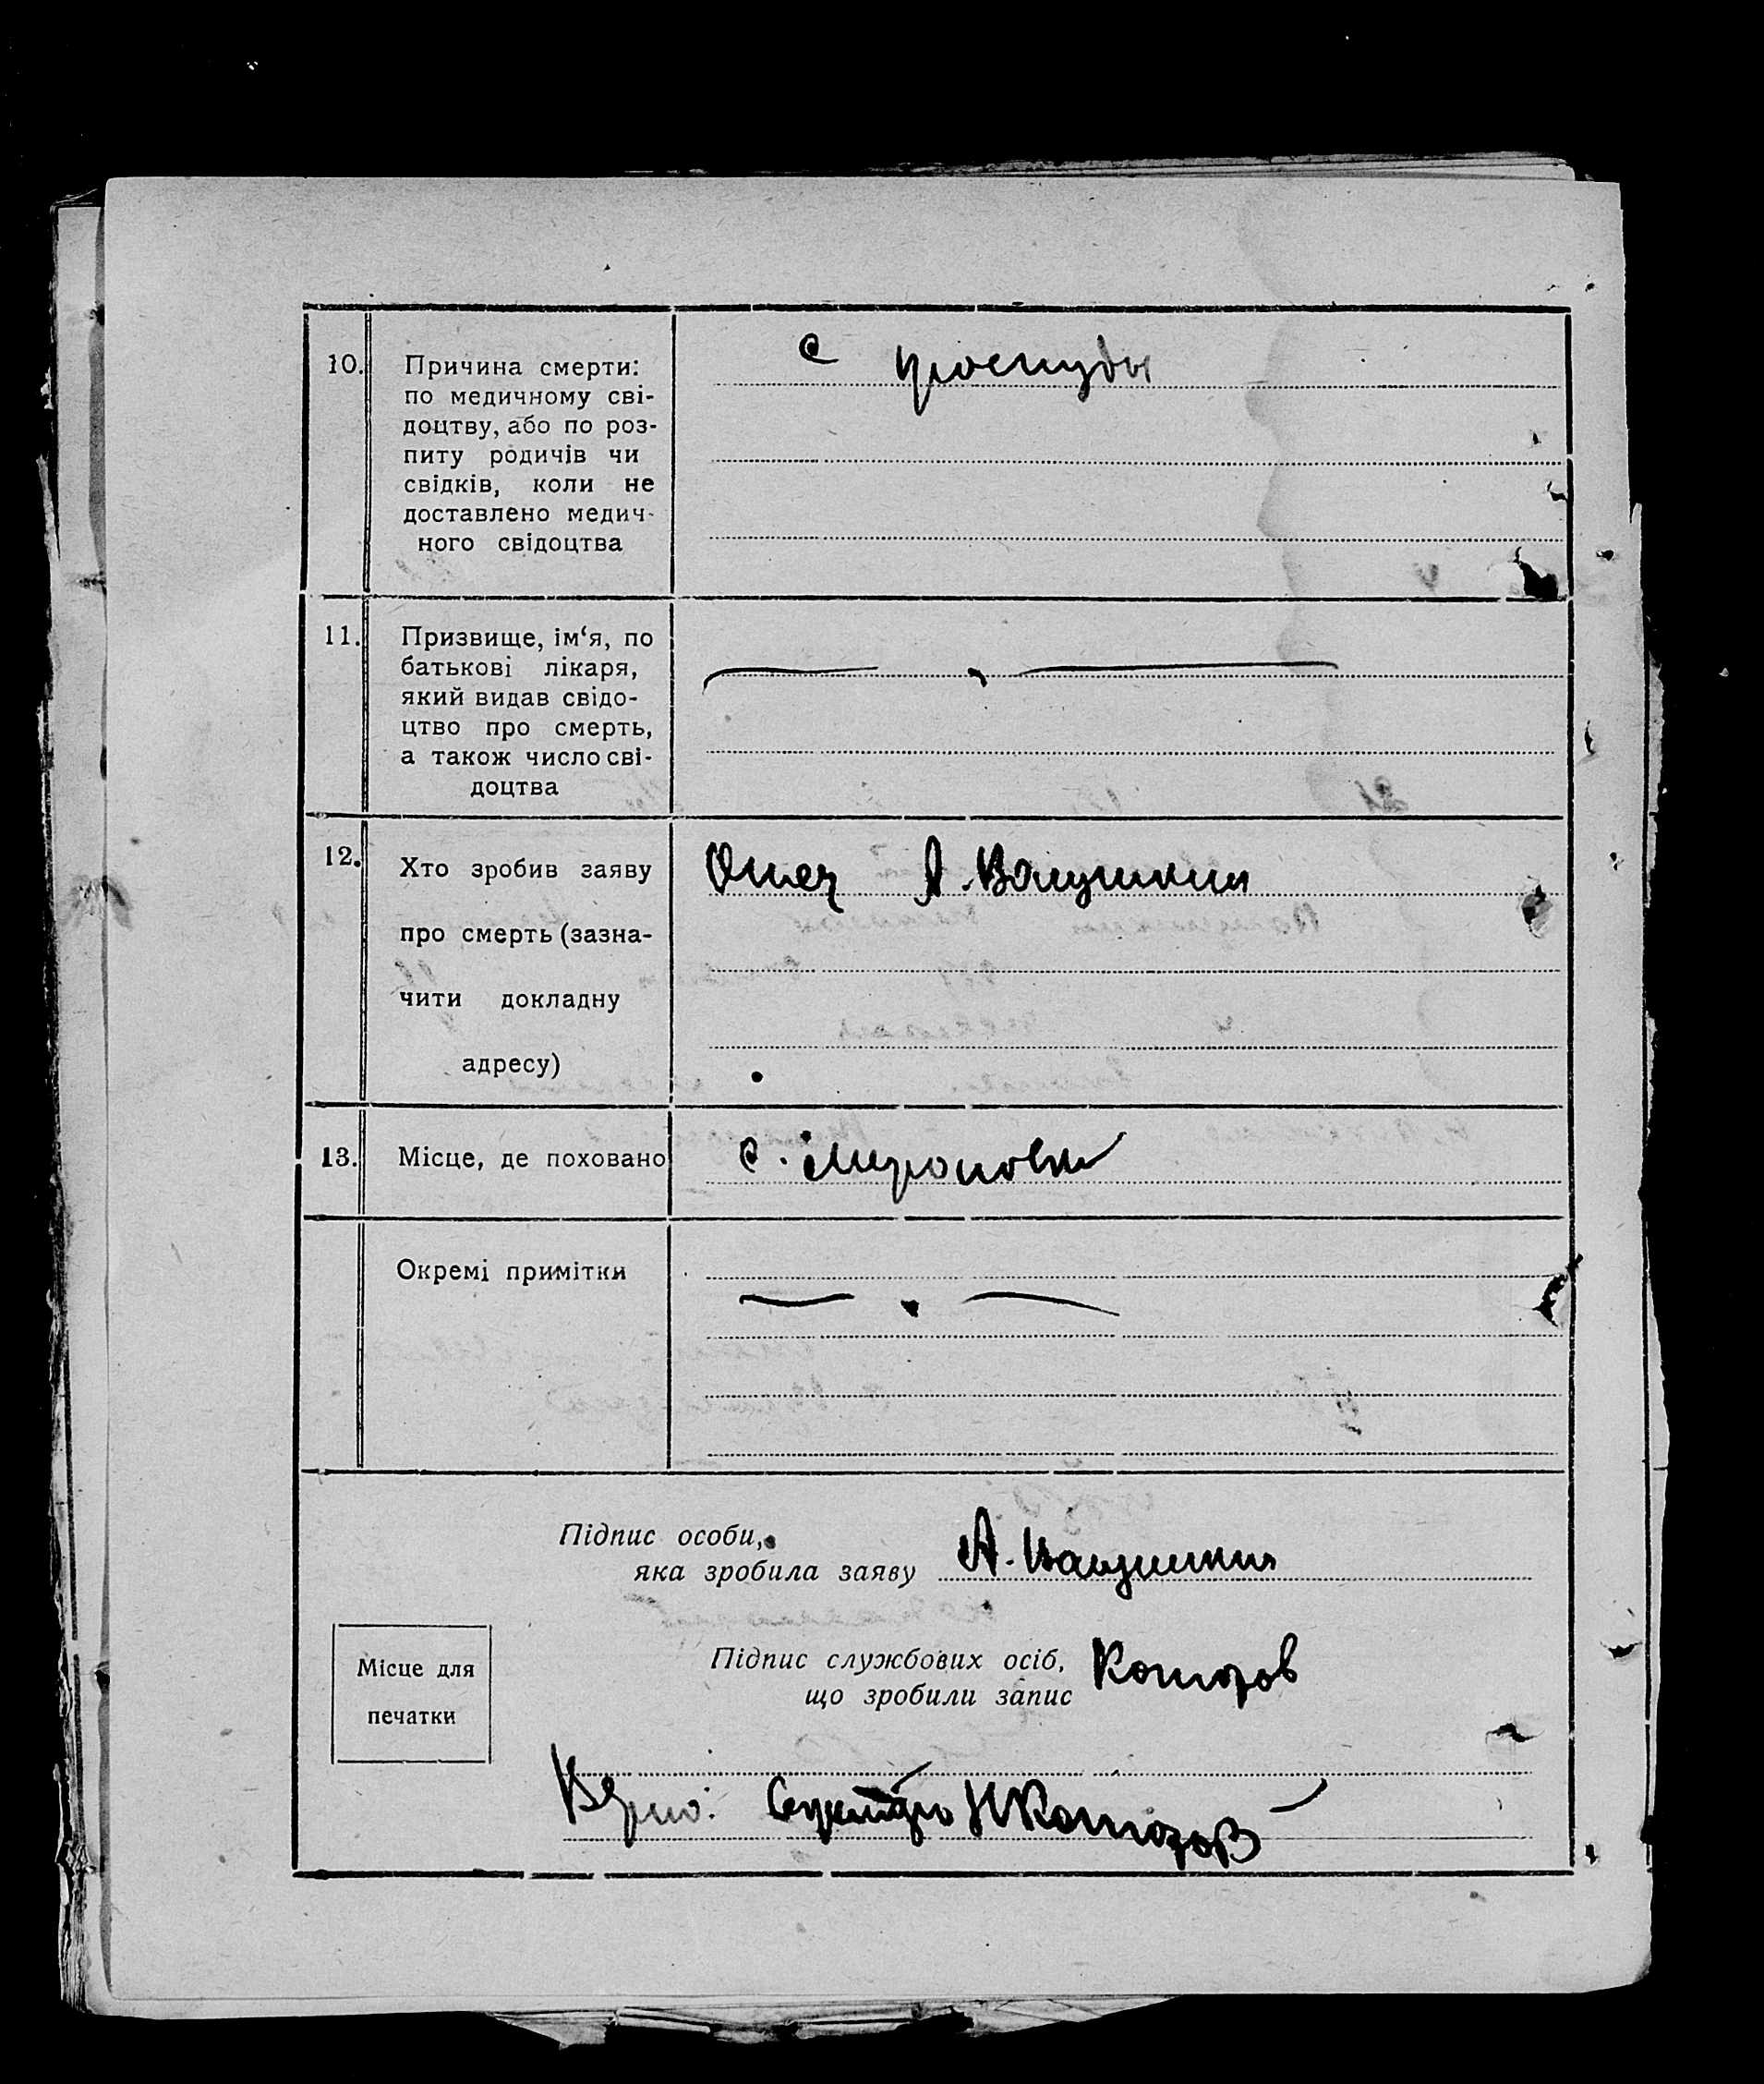 10. Причина смерти:
по медичному сві-
доцтву, або по роз-
питу родичів чи
свідків, коли не
доставлено медич-
ного свідоцтва
с простуды
11. Призвище, ім‘я, по
батькові лікаря,
який видав свідо-
цтво про смерть,
а також число сві-
доцтва
12. Хто зробив заяву
про смерть (зазна-
чити докладну
адресу)
Отец А.
13. Місце, де поховано
с. Мироновка
Окремі примітки
Підпис особи,
яка зробила заяву А.
Підпис службових осіб,
що зробили запис
Місце для
печатки
Верно: